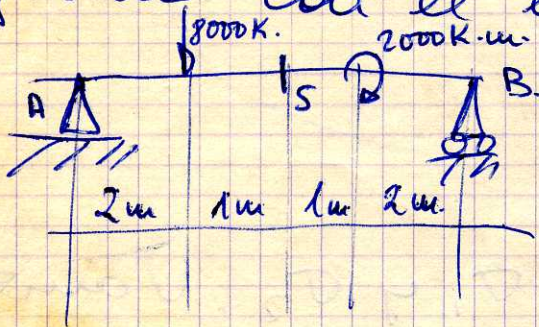 8000K. 2000K.m.
A S B
2m 1m 1m 2m.